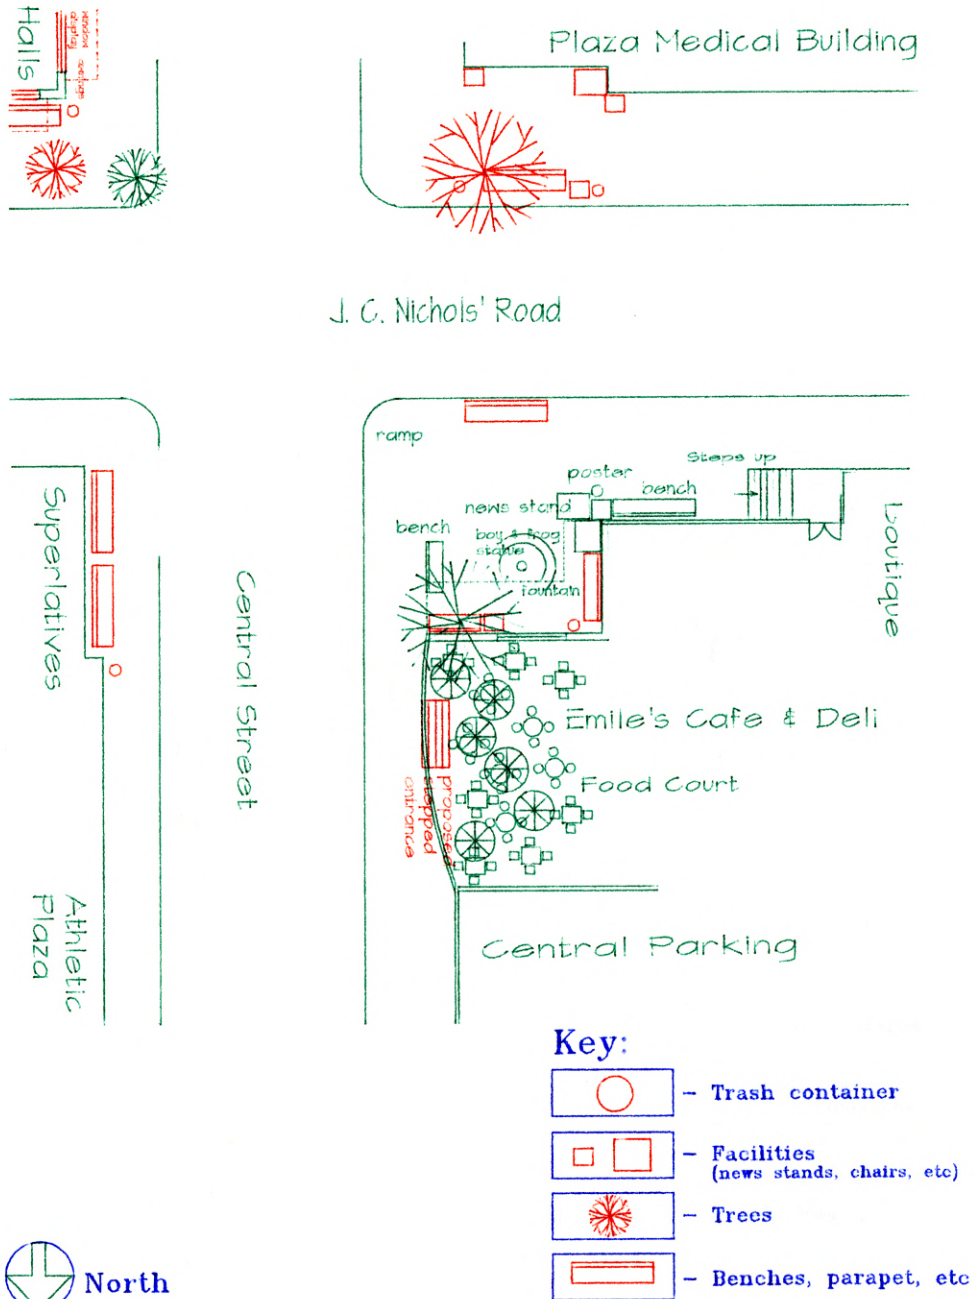 Halls
window
display
awnings
Plaza Medical Building
J. C. Nichols' Road
ramp
Steps up
poster
bench
news stand
bench
boy & frog
statue
fountain
Superlatives
Central Street
Loutique
Emile's Cafe & Deli
Food Court
proposed
stepped
entrance
Athletic
Plaza
Central Parking
Key:
- Trash container
- Facilities
(news stands, chairs, etc)
- Trees
- Benches, parapet, etc
North